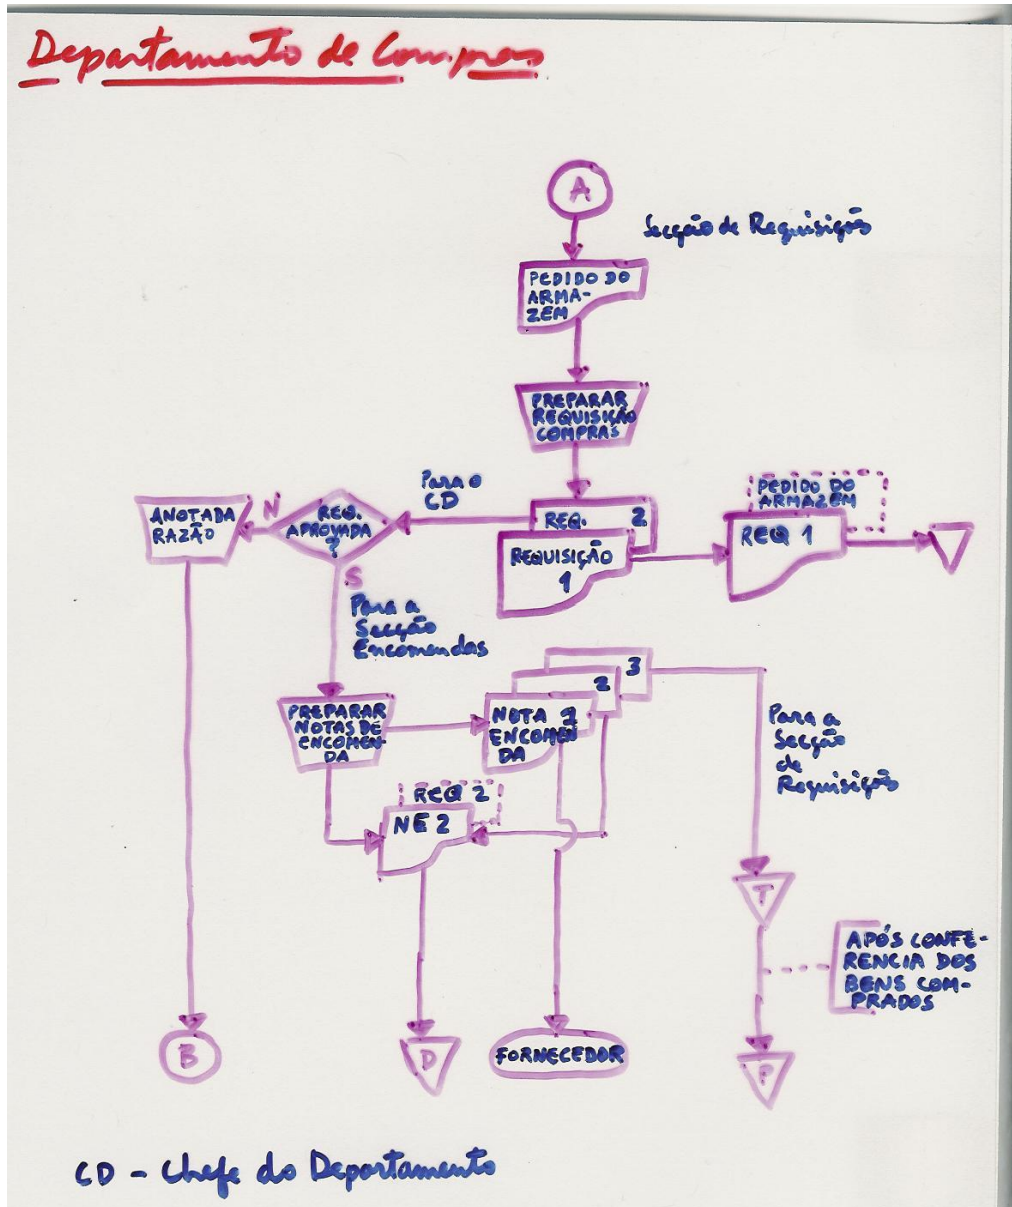 Departamento de Compras
A
Secção de Requisição
PEDIDO DO
ARMA-
ZEM
PREPARAR
REQUISIÇÃO
COMPRAS
Para o
CD
PEDIDO DO
ARMAZEM
ANOTADA
RAZÃO
N
REQ.
APROVADA
?
REQ. 2
REQUISIÇÃO
1
REQ 1
S
Para a
Secção
Encomendas
3
2
PREPARAR
NOTAS DE
ENCOMEN-
DA
NOTA 1
ENCOMEN
DA
Para a
Secção
de
Requisição
REQ 2
NE 2
T
APÓS CONFE-
RENCIA DOS
BENS COM-
PRADOS
B
D
FORNECEDOR
P
CD - Chefe do Departamento